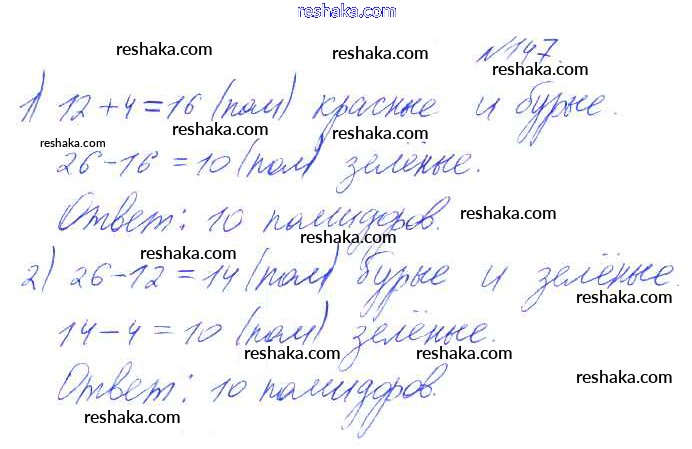 reshaka.com
reshaka.com reshaka.com №147.
1) 12+4=16 (пом) красные и бурые.
reshaka.com reshaka.com reshaka.com
26-16=10 (пом) зелёные.
reshaka.com
Ответ: 10 помидоров. reshaka.com
reshaka.com reshaka.com
2) 26-12=14 (пом) бурые и зелёные.
reshaka.com
14-4=10 (пом) зелёные.
reshaka.com reshaka.com
Ответ: 10 помидоров. reshaka.com
reshaka.com reshaka.com